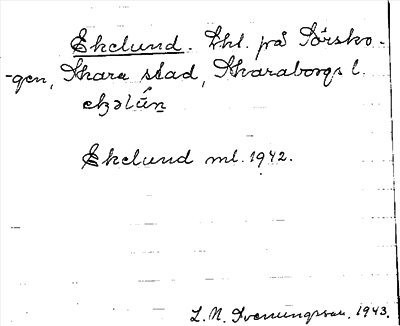 Ekelund. Lhl. på Sörsko-
-gen, Skara stad, Skaraborgs l.
Ekelund ml. 1942.
L. N. Svenungsson. 1943.